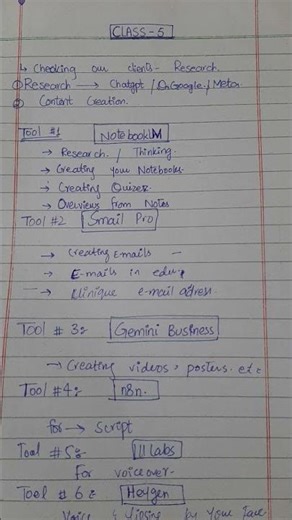 CLASS - 5
↳ Checking our clients Research.
① Research → Chatgpt / Google / Meta
② Content Creation.
Tool #1 NotebookLM
→ Research / Thinking.
→ Creating your Notebooks.
→ Creating Quizes
→ Overviews from Notes
Tool #2 Smail Pro
→ Creating Emails
→ E-mails in edu.p
→ e-mail adress.
Tool # 3:- Gemini Business
→ Creating videos, posters. etc
Tool #4:- n8n.
for → Script
Tool #5:- 11 labs
For voiceover.
Tool # 6:- Heygen
Voice & by your face